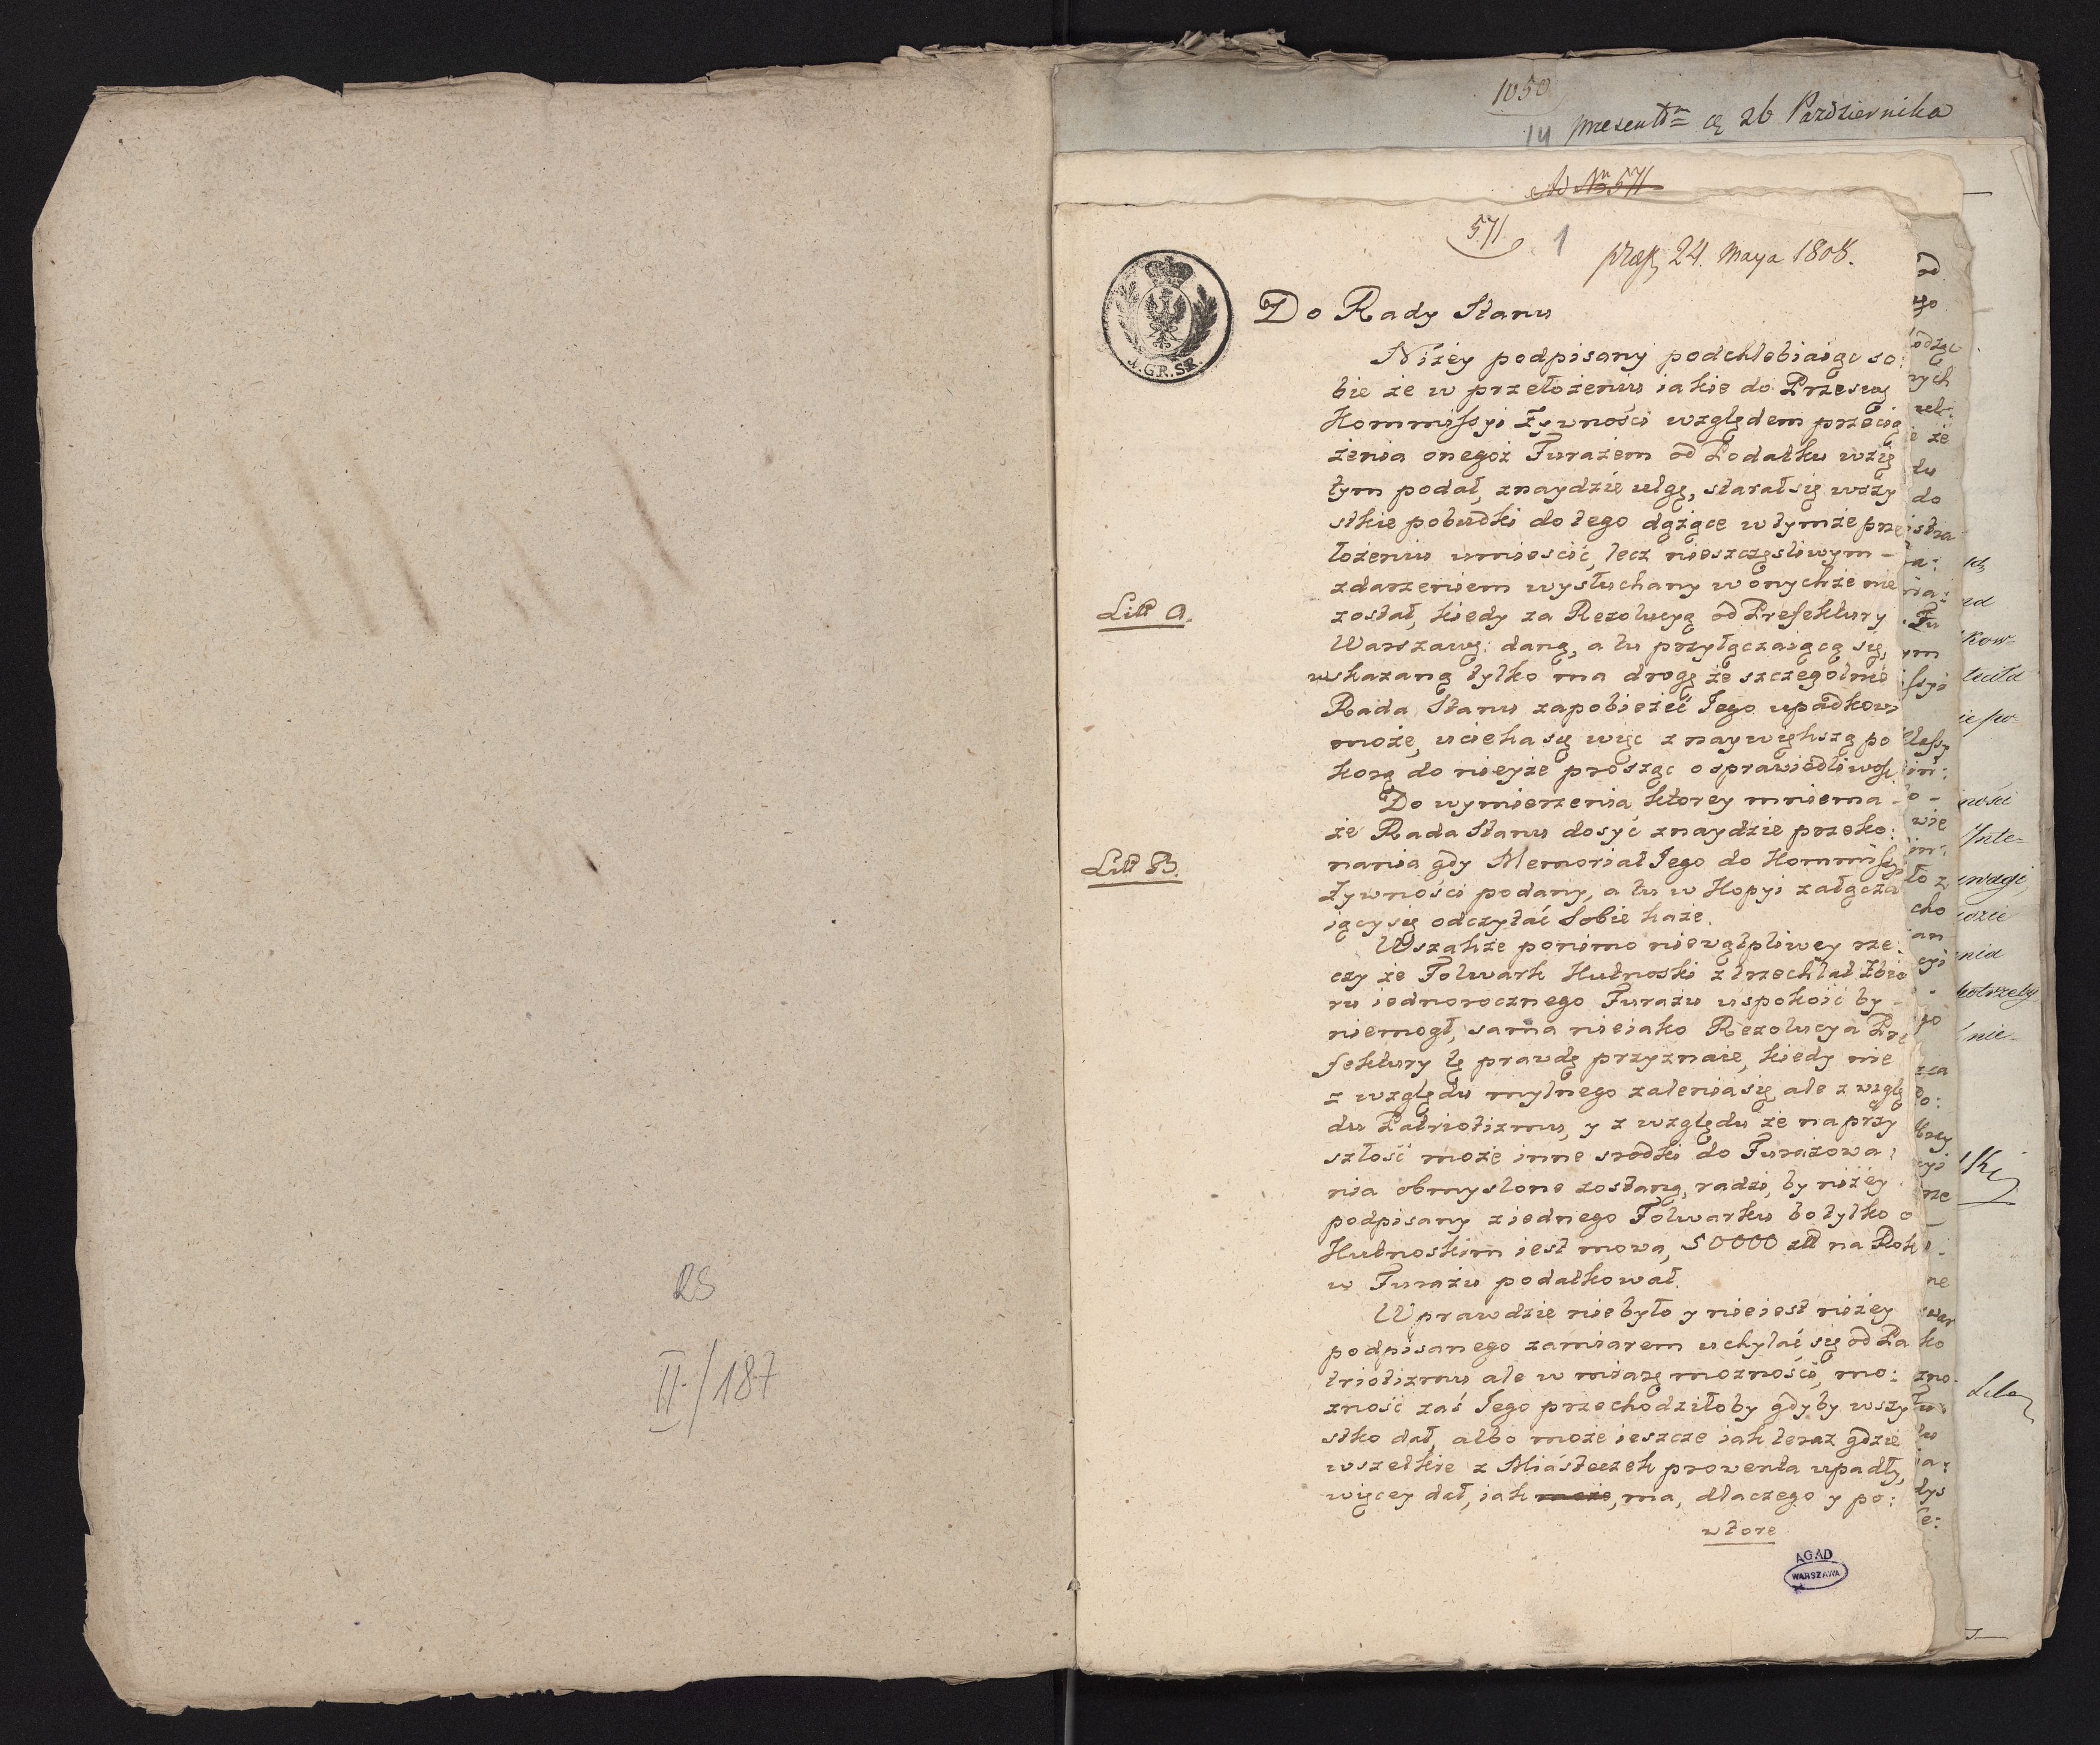 RS
II/187
1050
14 presentt a 26 Pazdziernika
Ad Nr 571
571
1
præs 24. Maya 1808.
Do Rady Stanu
1.GR.SR.
Niżey podpisany podchlebiaiąc so:
bie że w przełożeniu iakie do Przesw
Kommissyi Żywności względem przecią
żenia onegoż Furażem od Podatku wzię
tym podał, znaydzie ulgę, starał się wszy
stkie pobudki do tego dążące w tymże prze
łożeniu umieścić, lecz nieszczęsliwym -
zdarzeniem wysłuchany w onychże nie
Litt A.
został, kiedy za Rezolucyą od Prefektury
Warszaws: daną, a tu przyłączaiącą się,
wskazaną tylko ma drogę że szczegolnie
Rada Stanu zapobieżeć Jego upadkowi
może, ucieka się więc z naywiększą po
korą do nieyże prosząc o sprawiedliwość
Do wymierzenia ktorey mniema -
że Rada Stanu dosyć znaydzie przeko:
Litt B.
nania gdy Memoriał Jego do Kommissyi
Żywności podany, a tu w Kopyi załącza
iący się odczytać Sobie każe.
Wszakże pomimo niewątpliwey rze
czy że Folwark Hutnoski z trzech lat Zbio
ru iednorocznego Furażu uspokoić by -
niemogł, sama nieiako Rezolucya Pre
fektury tę prawdę przyznaie, kiedy nie
z względu mylnego żalenia się ale z wzglę
du Patriotizmu, y z względu że na przy
szłość może inne srodki do Furażowa:
nia obmyslone zostaną, radzi, by niżey
podpisany z iednego Folwarku bo tylko o
Hutnoskim iest mowa, 50000 złł na Rok
w Furażu podatkował.
Wprawdzie niebyło y nieiest niżey
podpisanego zamiarem uchylać się od Pa
triotizmu ale w miarę możności, mo:
żność zaś Jego przechodziłoby gdyby wszy
stko dał, albo może ieszcze iak teraz gdzie
wszelkie z Miásteczek prowenta upadły,
więcey dał, iak może, ma, dlaczego y po:
wtore
AGAD
WARSZAWA